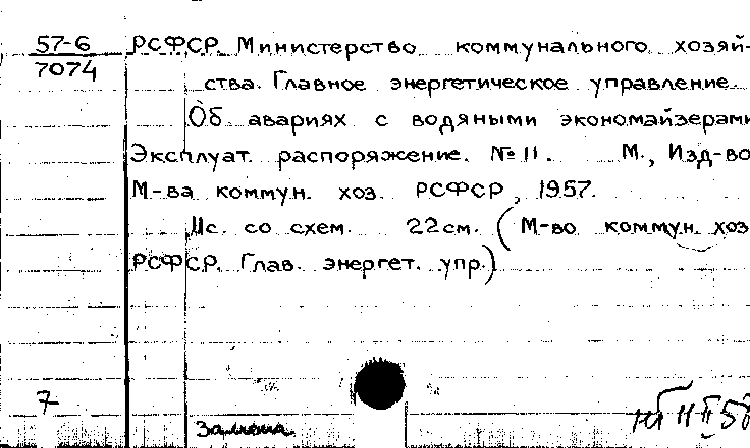 57-6
7074
РСФСР. Министерство коммунального хозяй-
ства. Главное энергетическое управление.
Об авариях с водяными экономайзерами
Эксплуат. распоряжение. № 11. М., Изд-во
М-ва коммун. хоз. РСФСР, 1957.
11с. со схем. 22см. (М-во коммун. хоз.
РСФСР. Глав. энергет. упр.)
7